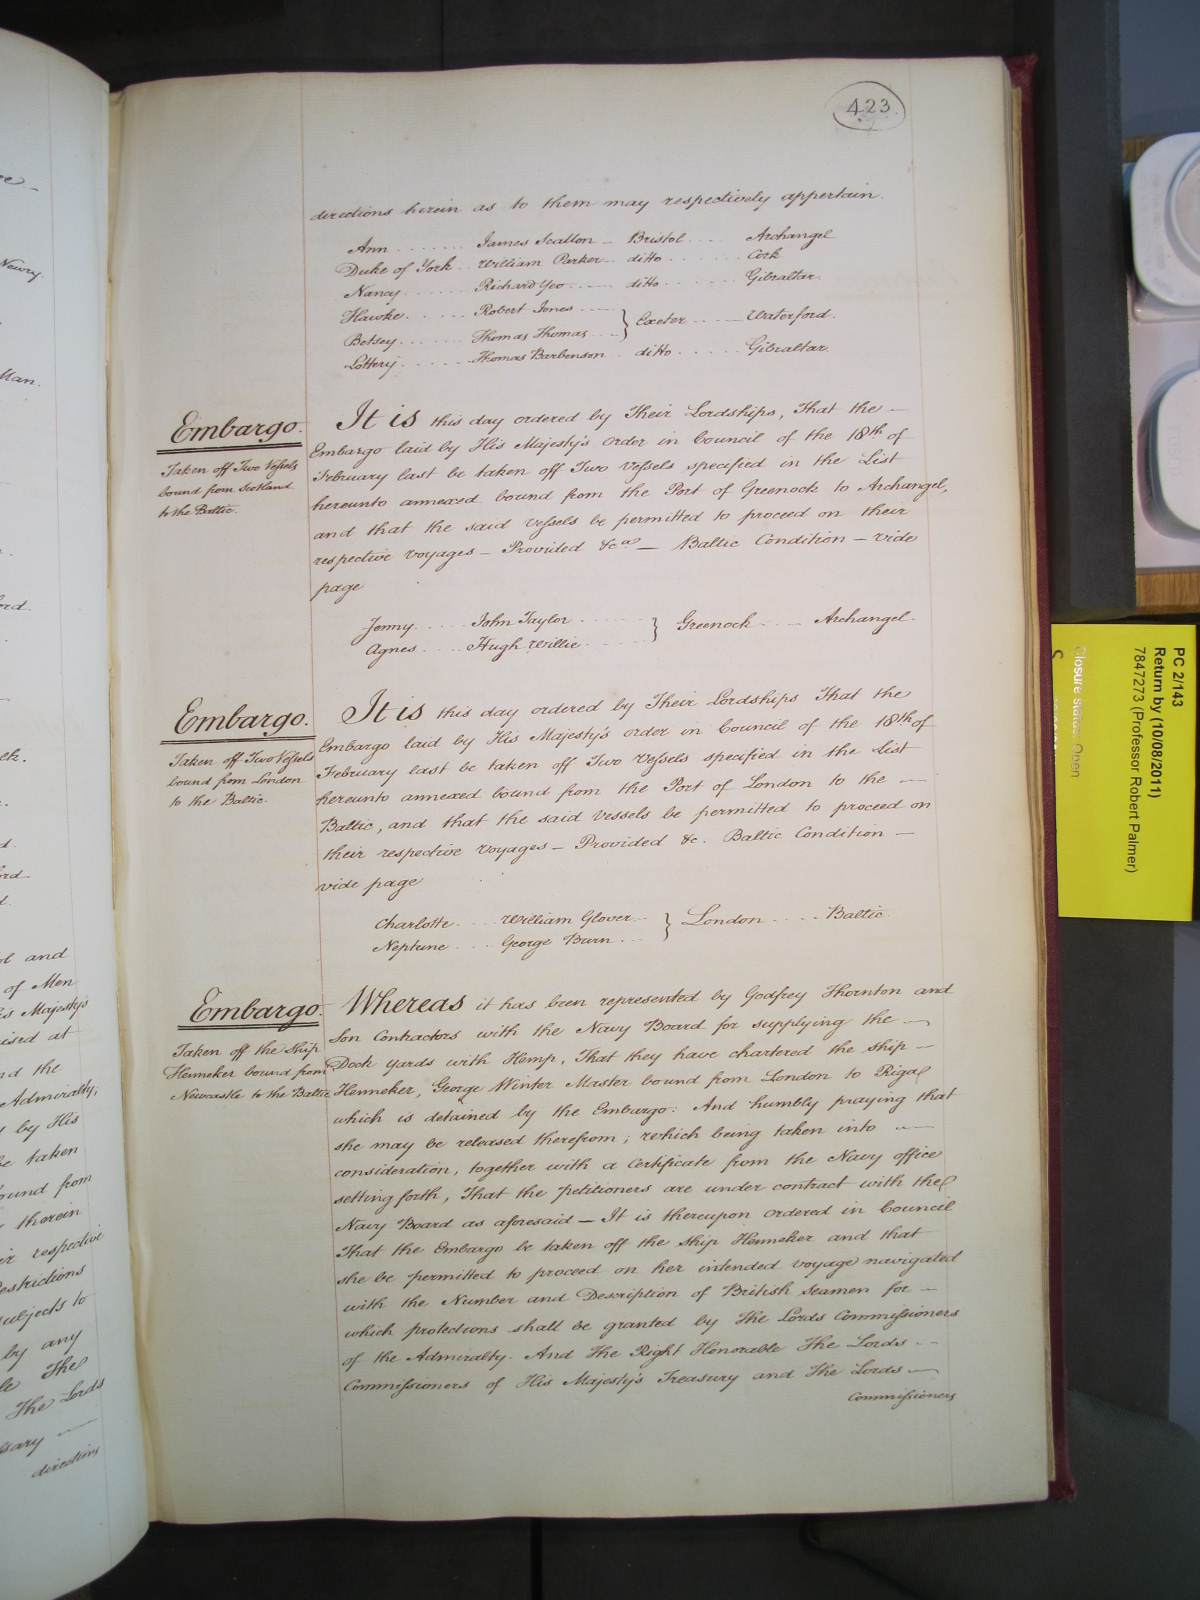 423
directions herein as to them may respectively appertain.
Ann ....... James Scallon – Bristol .... Archangel
Duke of York .. William Parker .. ditto ...... Cork
Nancy ....... Richard Yeo ...... ditto ...... Gibraltar.
Hawke ...... Robert Jones ......
Betsey ...... Thomas Thomas ... } Exeter ...... Waterford.
Lottery ...... Thomas Barbenson .. ditto ...... Gibraltar.
Embargo.
Taken off Two Vessels
bound from Scotland
to the Baltic.
It is this day ordered by Their Lordships, That the –
Embargo laid by His Majesty's order in Council of the 18th of
February last be taken off Two Vessels specified in the List
hereunto annexed bound from the Port of Greenock to Archangel,
and that the said Vessels be permitted to proceed on their
respective Voyages – Provided &ca – Baltic Condition – vide
page
Jenny ..... John Taylor ......
Agnes .... Hugh Willie ...... } Greenock ..... Archangel.
Embargo.
Taken off Two Vessels
bound from London
to the Baltic.
It is this day ordered by Their Lordships That the
Embargo laid by His Majesty's order in Council of the 18th of
February last be taken off Two Vessels specified in the List
hereunto annexed bound from the Port of London to the –
Baltic, and that the said Vessels be permitted to proceed on
their respective Voyages – Provided &c. Baltic Condition –
vide page
Charlotte .... William Glover ..
Neptune .... George Burn ... } London ..... Baltic.
Embargo.
Taken off the Ship
Henneker bound from
Newcastle to the Baltic
Whereas it has been represented by Godfrey Thornton and
Son Contractors with the Navy Board for supplying the –
Dock yards with Hemp, That they have chartered the ship –
Henneker, George Winter Master bound from London to Riga
which is detained by the Embargo: And humbly praying that
she may be released therefrom; which being taken into –
consideration, together with a Certificate from the Navy office
setting forth, That the petitioners are under contract with the
Navy Board as aforesaid – It is thereupon ordered in Council
That the Embargo be taken off the Ship Henneker and that
she be permitted to proceed on her intended voyage navigated
with the Number and Description of British Seamen for –
which protections shall be granted by The Lords Commissioners
of the Admiralty. And The Right Honorable The Lords –
Commissioners of His Majesty's Treasury and The Lords –
Commissioners
Newry.
Man.
ol and
of Men
Majesty's
ised at
nd the
Admiralty,
by His
be taken
ound from
therein
respective
Restrictions
subjects to
by any
The
The Lords
directions
PC 2/143
Return by (10/08/2011)
7847273 (Professor Robert Palmer)
Closure status: Open